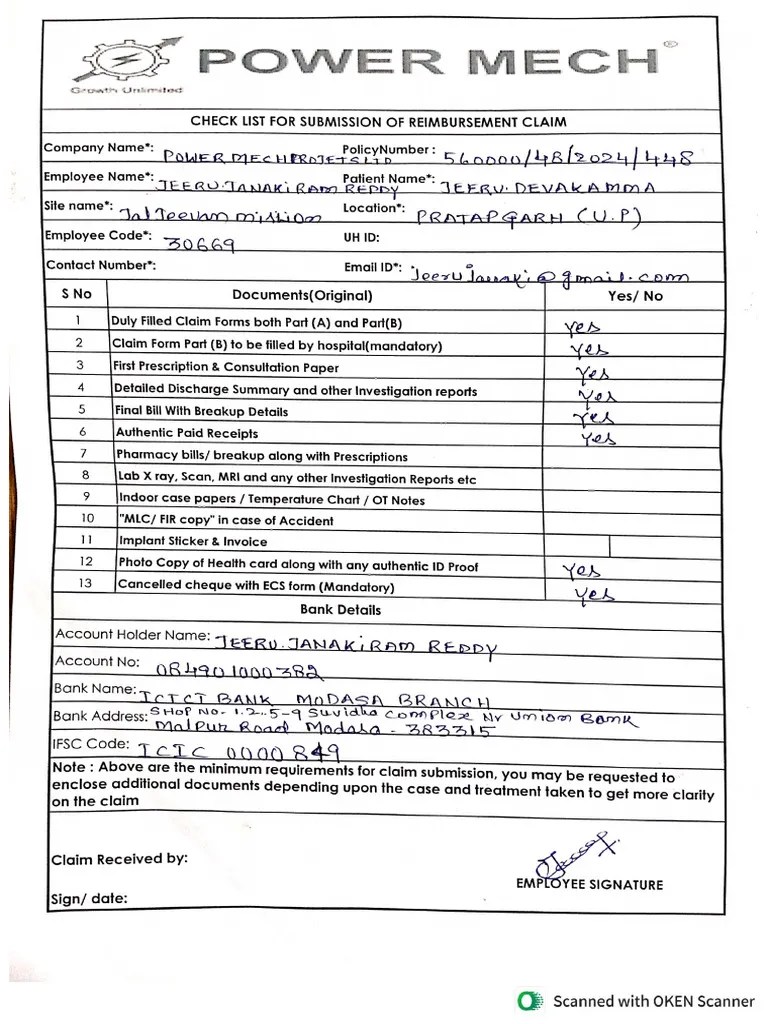 POWER MECH®
Growth Unlimited
CHECK LIST FOR SUBMISSION OF REIMBURSEMENT CLAIM
Company Name*: POWER MECHPROJETS LTD PolicyNumber : 560000/48/2024/448
Employee Name*: JEERU.JANAKIRAM REDDY Patient Name*: JEERU.DEVAKAMMA
Site name*: Jal Jeevan mission Location*: PRATAPGARH (U.P)
Employee Code*: 30669 UH ID:
Contact Number*: Email ID*: jeerujanaki@gmail.com
S No Documents(Original) Yes/ No
1 Duly Filled Claim Forms both Part (A) and Part(B) yes
2 Claim Form Part (B) to be filled by hospital(mandatory) yes
3 First Prescription & Consultation Paper Yes
4 Detailed Discharge Summary and other Investigation reports Yes
5 Final Bill With Breakup Details Yes
6 Authentic Paid Receipts Yes
7 Pharmacy bills/ breakup along with Prescriptions
8 Lab X ray, Scan, MRI and any other Investigation Reports etc
9 Indoor case papers / Temperature Chart / OT Notes
10 "MLC/ FIR copy" in case of Accident
11 Implant Sticker & Invoice
12 Photo Copy of Health card along with any authentic ID Proof Yes
13 Cancelled cheque with ECS form (Mandatory) Yes
Bank Details
Account Holder Name: JEERU.JANAKIRAM REDDY
Account No: 084901000382
Bank Name: ICICI BANK MODASA BRANCH
Bank Address: SHOP NO- 1.2..5-9 Suvidha Complex Nr Union Bank
Malpur Road Modasa - 383315
IFSC Code: ICIC 0000849
Note : Above are the minimum requirements for claim submission, you may be requested to
enclose additional documents depending upon the case and treatment taken to get more clarity
on the claim
Claim Received by:
EMPLOYEE SIGNATURE
Sign/ date:
Scanned with OKEN Scanner